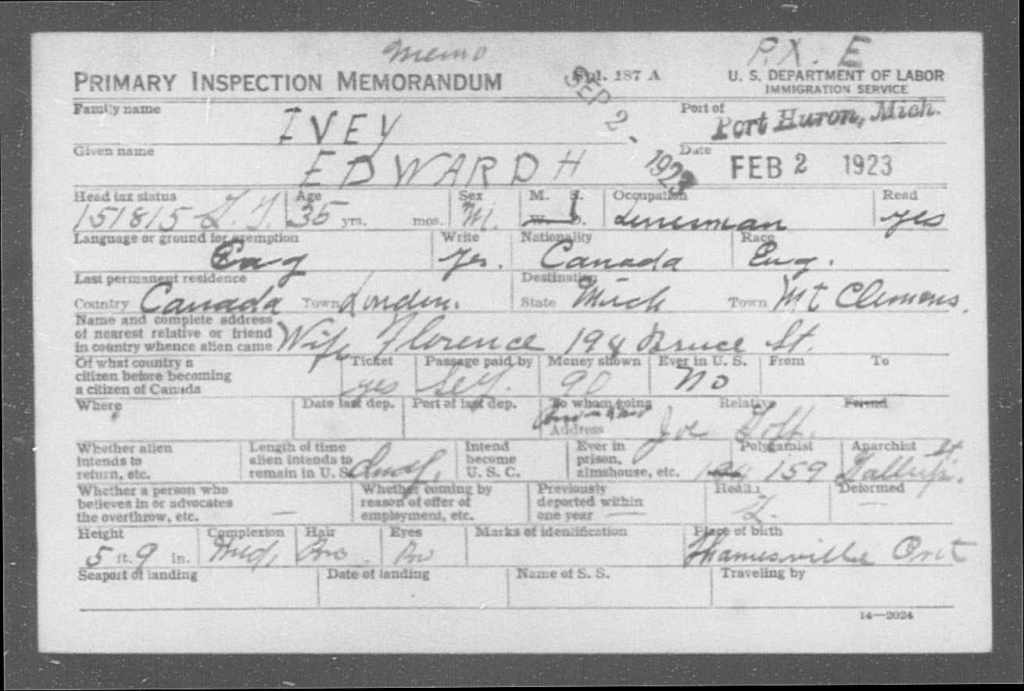 Memo P.X. E
PRIMARY INSPECTION MEMORANDUM Vol. 187 A U. S. DEPARTMENT OF LABOR
IMMIGRATION SERVICE
SEP 2 - 1923
Family name IVEY Port of Port Huron, Mich.
Given name EDWARD H Date FEB 2 1923
Head tax status 151815 Age 35 yrs. mos. Sex M. M. S. W. D. Occupation Lineman Read yes
Language or ground for exemption Eng Write yes. Nationality Canada Race Eng.
Last permanent residence Destination
Country Canada Town London. State Mich Town Mt Clemens.
Name and complete address
of nearest relative or friend
in country whence alien came Wife Florence 198 Bruce St.
Of what country a
citizen before becoming
a citizen of Canada Ticket yes Passage paid by Self. Money shown 90 Ever in U. S. No From To
Where Date last dep. Port of last dep. To whom going Relative Friend
Address Joe
Whether alien
intends to
return, etc. Length of time
alien intends to
remain in U. S. Intend
become
U. S. C. Ever in
prison,
almshouse, etc. Polygamist 159 Anarchist St.
Whether a person who
believes in or advocates
the overthrow, etc. — Whether coming by
reason of offer of
employment, etc. Previously
deported within
one year — Health Deformed —
Height 5 ft. 9 in. Complexion Med. Hair Bro. Eyes Br Marks of identification Place of birth Thamesville Ont
Seaport of landing Date of landing Name of S. S. Traveling by
14—2024